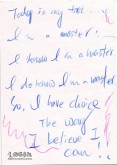 Today is my ...
I'm a master.
I know I'm a master
I do know I'm a master
So, I have choice
The way
I believe I
can!!